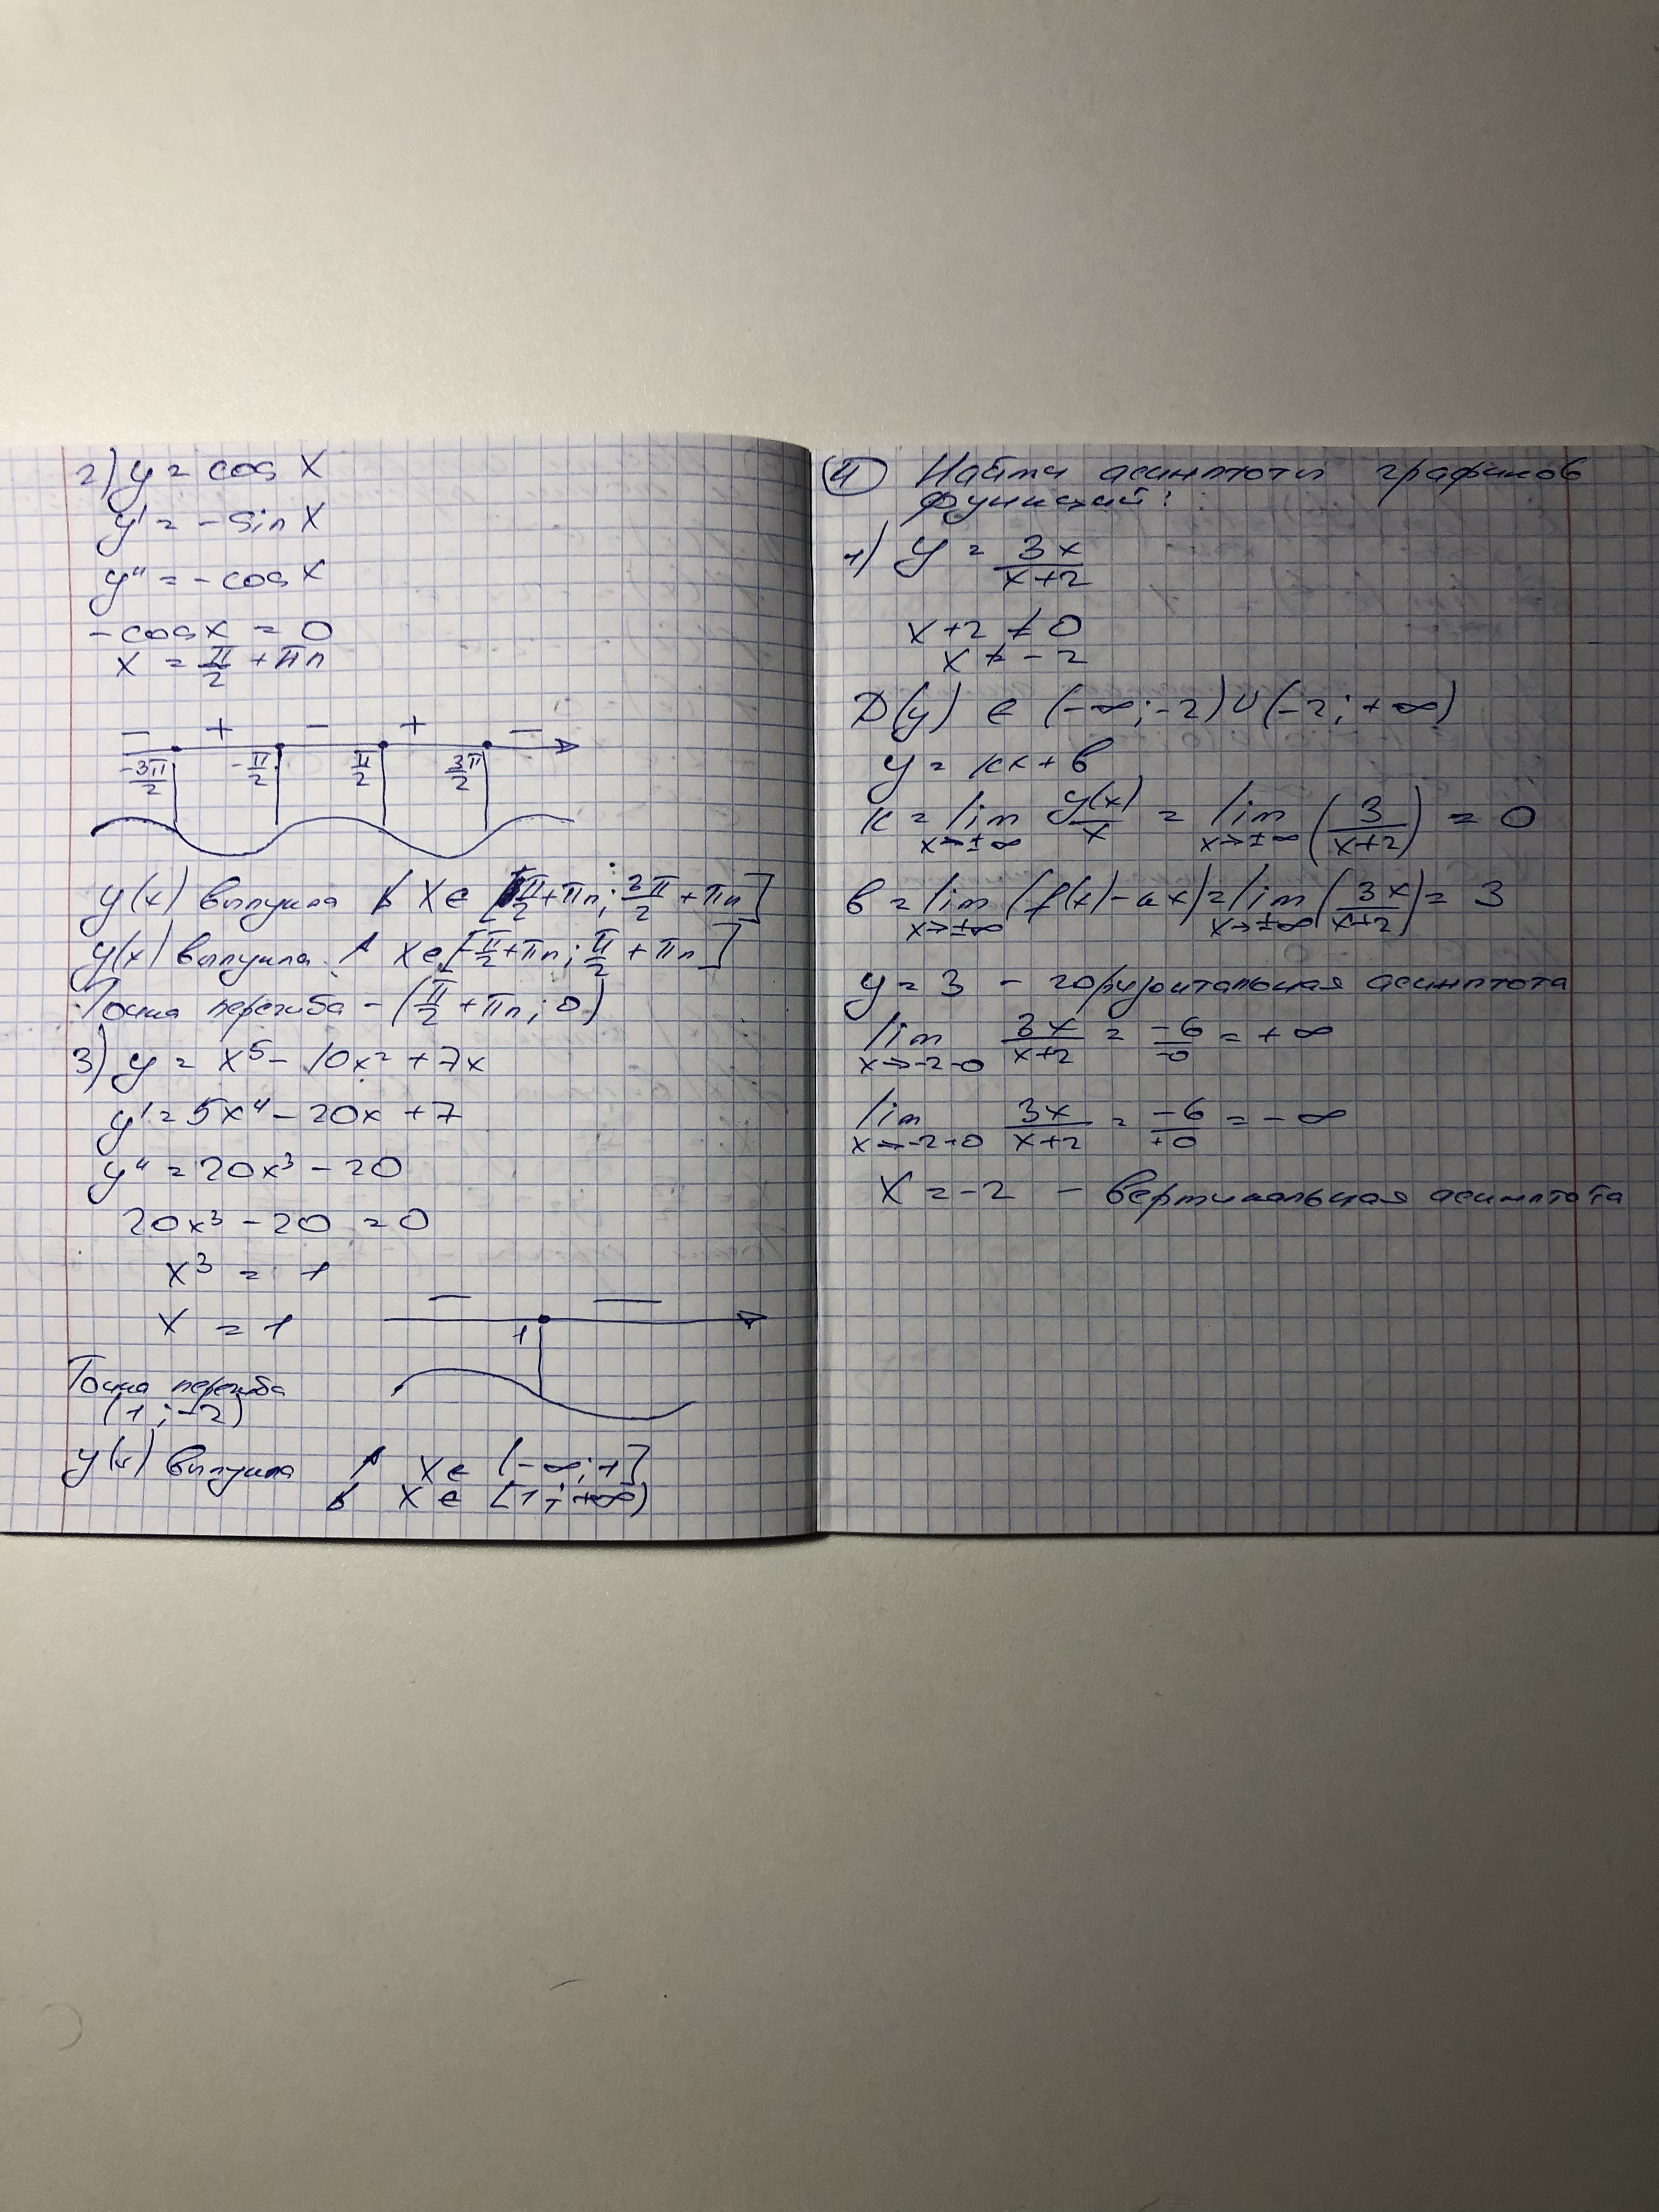 2) y = cos x
y' = - sin x
y'' = - cos x
- cos x = 0
x = π/2 + πn
- + - + -
-3π/2 -π/2 π/2 3π/2
y(x) выпукла ↓ x ∈ [π/2 + πn; 3π/2 + πn]
y(x) выпукла ↑ x ∈ [-π/2 + πn; π/2 + πn]
Точка перегиба - (π/2 + πn; 0)
3) y = x⁵ - 10x² + 7x
y' = 5x⁴ - 20x + 7
y'' = 20x³ - 20
20x³ - 20 = 0
x³ = 1
x = 1
- -
1
Точка перегиба
(1; -2)
y(x) выпукла ↑ x ∈ (-∞; 1]
↓ x ∈ [1; +∞)
4 Найти асимптоты графиков
функций:
1) y = 3x/(x+2)
x + 2 ≠ 0
x ≠ - 2
D(y) ∈ (-∞; -2) ∪ (-2; +∞)
y = kx + b
k = lim x→±∞ y(x)/x = lim x→±∞ (3/(x+2)) = 0
b = lim x→±∞ (f(x) - kx) = lim x→±∞ (3x/(x+2)) = 3
y = 3 - горизонтальная асимптота
lim x→-2-0 3x/(x+2) = -6/-0 = +∞
lim x→-2+0 3x/(x+2) = -6/+0 = -∞
x = -2 - вертикальная асимптота